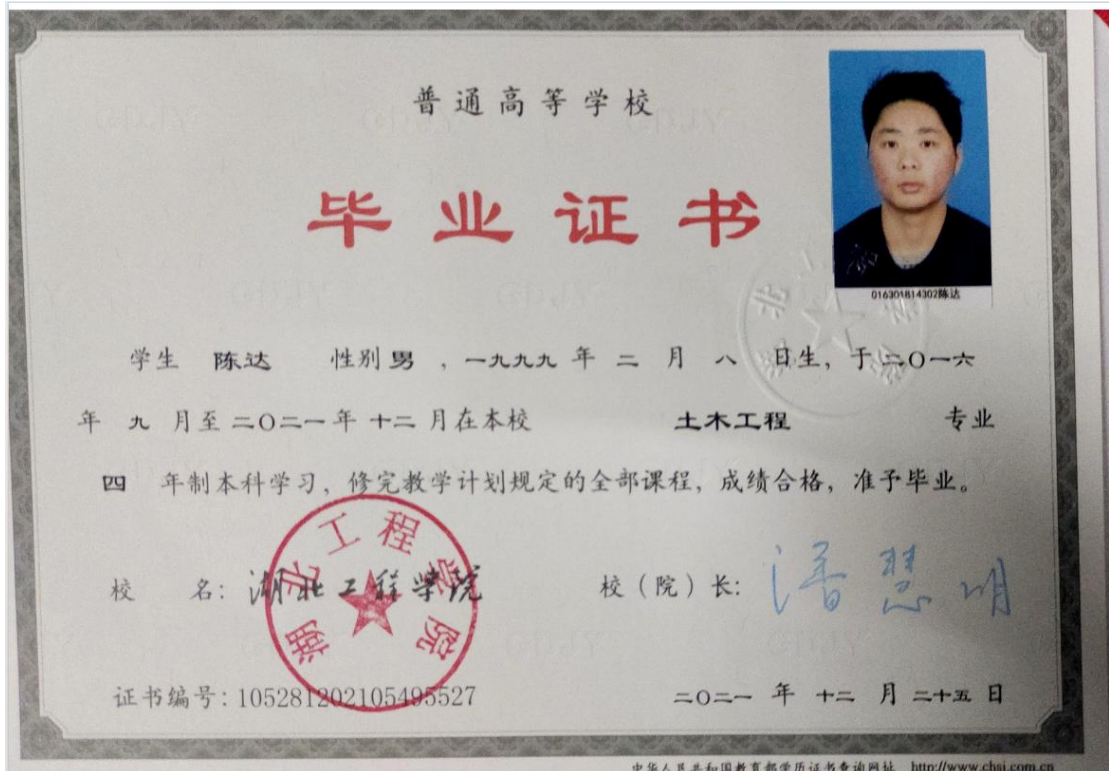 普通高等学校
毕业证书
016301814302陈达
学生 陈达 性别 男 ，一九九九 年 二 月 八 日生，于二〇一六
年 九 月至 二〇二一 年 十二 月在本校 土木工程 专业
四 年制本科学习，修完教学计划规定的全部课程，成绩合格，准予毕业。
湖北工程学院
校 名：湖北工程学院 校（院）长：潘慧明
证书编号：105281202105495527 二〇二一 年 十二 月 二十五 日
中华人民共和国教育部学历证书查询网址 http://www.chsi.com.cn